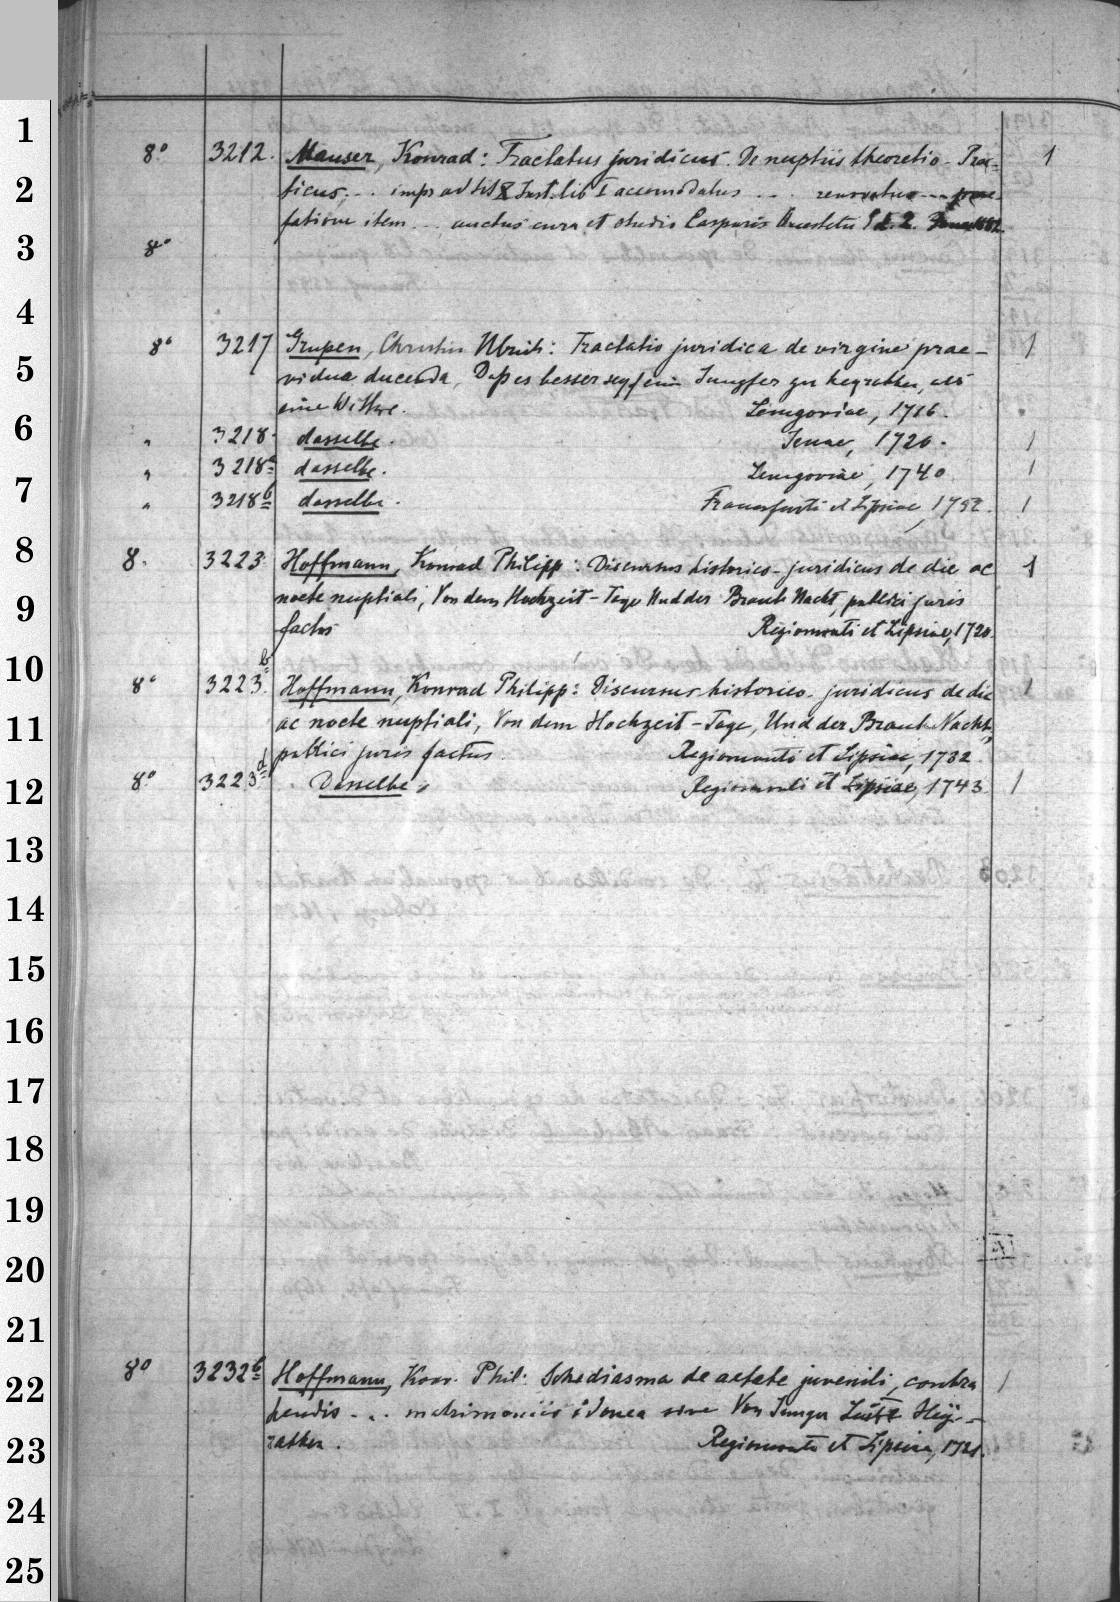 1
8° 3212. Mauser, Konrad: Tractatus juridicus. De nuptiis theoretico-Prac- 1
2
ticus, ... impr ad tit X Inst. lib I accomodatus ... renovatus ... prae-
fatione item ... auctus cura et studio Casparis
3
8°
4
8° 3217 Grupen, Christian Ulrich: Tractatio juridica de virgine prae- 1
5
vidua ducenda, Dass es besser seÿ, ein Jungfer zu heyrathen, als
eine Witbwe. Lemgoviae, 1716.
6
" 3218. dasselbe. Jenae, 1720. 1
" 3218a dasselbe. Lemgoviae, 1740 1
7
" 3218b dasselbe. Francofurti et Lipsiae, 1752. 1
8
8. 3223. Hoffmann, Konrad Philipp: Discursus historico-juridicus de die ac 1
9
nocte nuptiali, Von dem Hochzeit-Tage Und der Braut Nacht, publici juris
factus Regiomonti et Lipsiae, 1720.
10
8° 3223b. Hoffmann, Konrad Philipp: Discursus historico-juridicus de die 1
11
ac nocte nuptiali, Von dem Hochzeit-Tage, Und der Braut-Nacht,
publici juris factus. Regiomonti et Lipsiae, 1732.
12
8° 3223d Dasselbe, Regiomonti et Lipsiae, 1743. 1
13
14
15
16
17
18
19
20
21
22
8° 3232b Hoffmann, Konr. Phil: Schediasma de aetate juvenili, contra 1
hendis ... matrimoniis idonea sive Von Junger Leüte Heÿ-
23
rathen. Regiomonti et Lipsiae, 1721.
24
25